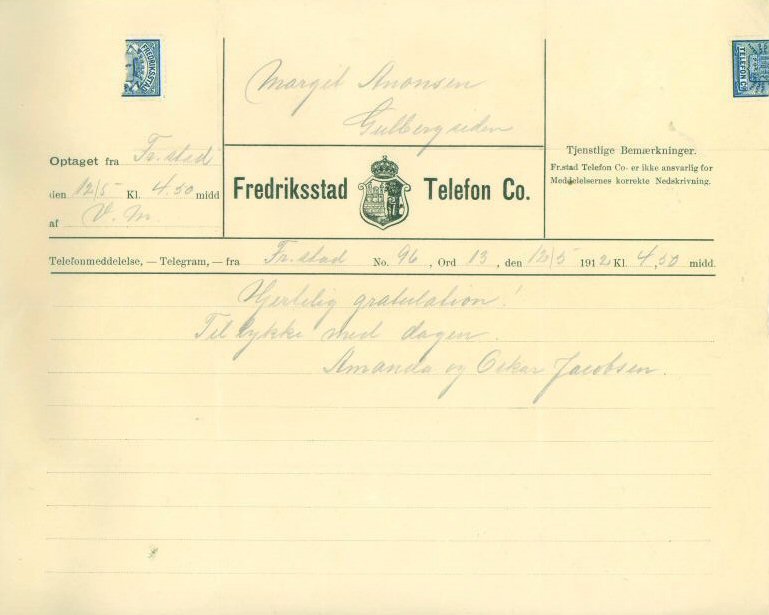 FREDRIKSSTAD
TELEFON Co
Margit Anonsen
Gulbergsiden
Optaget fra Fr.stad
den 12/5 Kl. 4.50 midd
af V. M.
Fredriksstad Telefon Co.
Tjenstlige Bemærkninger.
Fr.stad Telefon Co. er ikke ansvarlig for
Meddelelsernes korrekte Nedskrivning.
Telefonmeddelelse, — Telegram, — fra Fr.stad No. 96, Ord 13, den 12/5 1912 Kl. 4,50 midd.
Hjertelig gratulation!
Til lykke med dagen.
Amanda og Oskar Jacobsen.